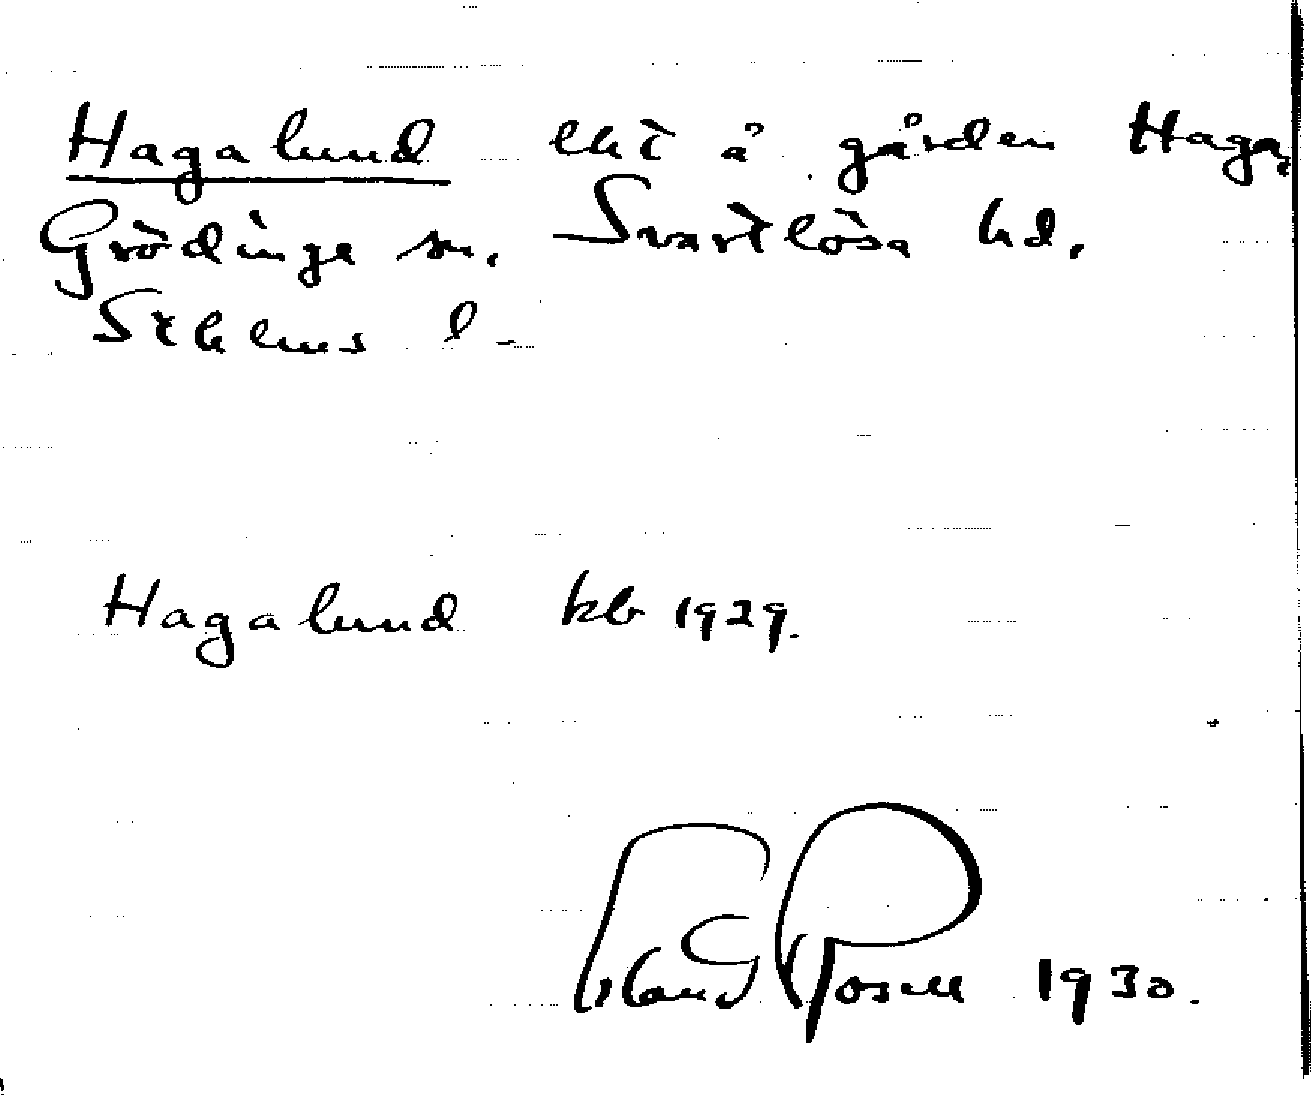 Hagalund lht å gården Haga,
Grödinge sn. Svartlösa hd.
Sthlms l.
Hagalund kb 1929.
1930.